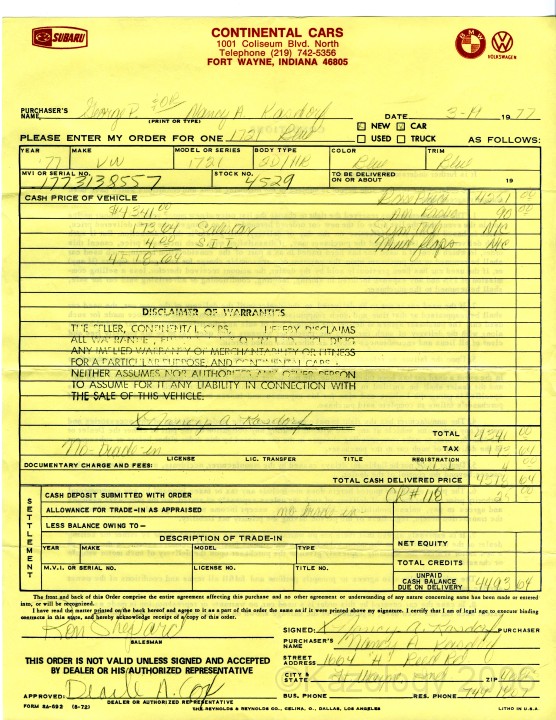 SUBARU
CONTINENTAL CARS
1001 Coliseum Blvd. North
Telephone (219) 742-5356
FORT WAYNE, INDIANA 46805
BMW
VOLKSWAGEN
PURCHASER'S NAME George P. &/OR Nancy A. Kasdorf DATE 3-11 1977
(PRINT OR TYPE)
NEW CAR
PLEASE ENTER MY ORDER FOR ONE 1721 Blue USED TRUCK AS FOLLOWS:
YEAR MAKE MODEL OR SERIES BODY TYPE COLOR TRIM
77 VW 1721 Blue Blue
MVI OR SERIAL NO. STOCK NO. TO BE DELIVERED ON OR ABOUT 19
1773138557 4529
CASH PRICE OF VEHICLE 4251 00
$4341.00 AM Radio 90 00
173.64 N/C
4.00 S.T.I. Mud flaps N/C
4518.64
DISCLAIMER OF WARRANTIES
THE SELLER, CONTINENTAL CARS, HEREBY DISCLAIMS
ALL WARRANTIES,
ANY IMPLIED WARRANTY OF MERCHANTABILITY OR FITNESS
FOR A PARTICULAR PURPOSE, AND CONTINENTAL CARS
NEITHER ASSUMES NOR AUTHORIZES ANY OTHER PERSON
TO ASSUME FOR IT ANY LIABILITY IN CONNECTION WITH
THE SALE OF THIS VEHICLE.
X Nancy A. Kasdorf
TOTAL 4341 00
No trade-in TAX 173 64
LICENSE LIC. TRANSFER TITLE REGISTRATION
DOCUMENTARY CHARGE AND FEES: 4 00
TOTAL CASH DELIVERED PRICE 4518 64
SETTLEMENT
CASH DEPOSIT SUBMITTED WITH ORDER CK# 118 25 00
ALLOWANCE FOR TRADE-IN AS APPRAISED no trade-in
LESS BALANCE OWING TO—
DESCRIPTION OF TRADE-IN NET EQUITY
YEAR MAKE MODEL TYPE
TOTAL CREDITS
M.V.I. OR SERIAL NO. LICENSE NO. TITLE NO.
UNPAID CASH BALANCE DUE ON DELIVERY 4493 64
The front and back of this Order comprise the entire agreement affecting this purchase and no other agreement or understanding of any nature concerning same has been made or entered
into, or will be recognized.
I have read the matter printed on the back hereof and agree to it as a part of this order the same as if it were printed above my signature. I certify that I am of legal age to execute binding
contracts in this state, and hereby acknowledge receipt of a copy of this order.
Ron Shepard SIGNED: X Nancy A. Kasdorf PURCHASER
SALESMAN
PURCHASER'S NAME Nancy A. Kasdorf
THIS ORDER IS NOT VALID UNLESS SIGNED AND ACCEPTED
BY DEALER OR HIS/AUTHORIZED REPRESENTATIVE
STREET ADDRESS 1604 "A" Reed Rd
CITY & STATE Ft Wayne Ind ZIP
APPROVED: BUS. PHONE RES. PHONE
DEALER OR AUTHORIZED REPRESENTATIVE
FORM SA-692 (8-72) THE REYNOLDS & REYNOLDS CO., CELINA, O., DALLAS, LOS ANGELES LITHO IN U.S.A.